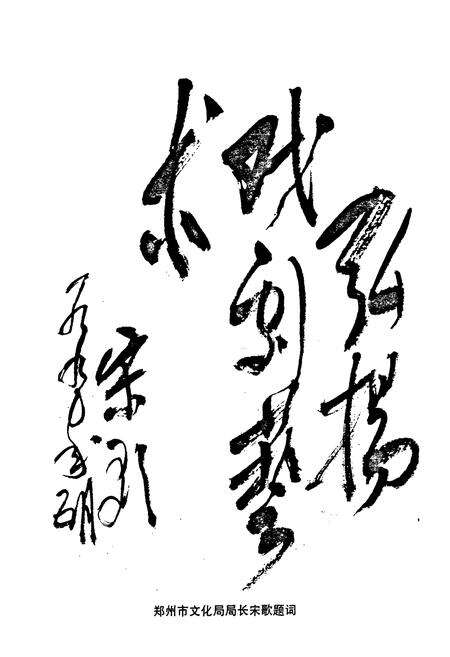 弘揚
戏剧藝
术
宋歌
郑州市文化局局长宋歌题词